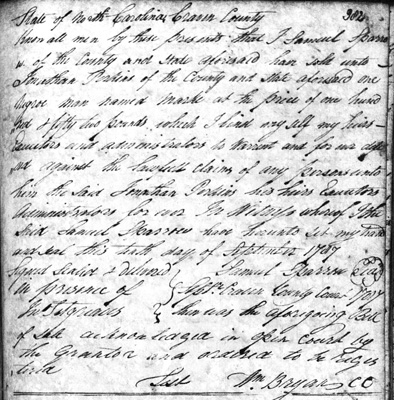 State of North Carolina Craven County 302
Know all men by these presents that I Samuel Sparro
w of the County and State aforesaid have sold unto
Jonathan Perkins of the County and State aforesaid one
Negroe man named at the price of one hund
red & fifty two pounds which I bind my self my heirs
Executors and administrators to Warrent and for ever defe
nd against the lawfull claims of any persons unto
him the said Jonathan Perkins his heirs Executors
Administrators for ever In Witness whereof I the
said Samuel Sparrow have hereunto set my hand
and seal this tenth day of September 1787
signed sealed & delivred Samuel Sparrow Seal
in presence of Craven County Court 1787
then was the aforegoing Bill
of sale acknowledged in open Court by
the Grantor and ordered to be Regis
terd
Test Wm Bryan CC